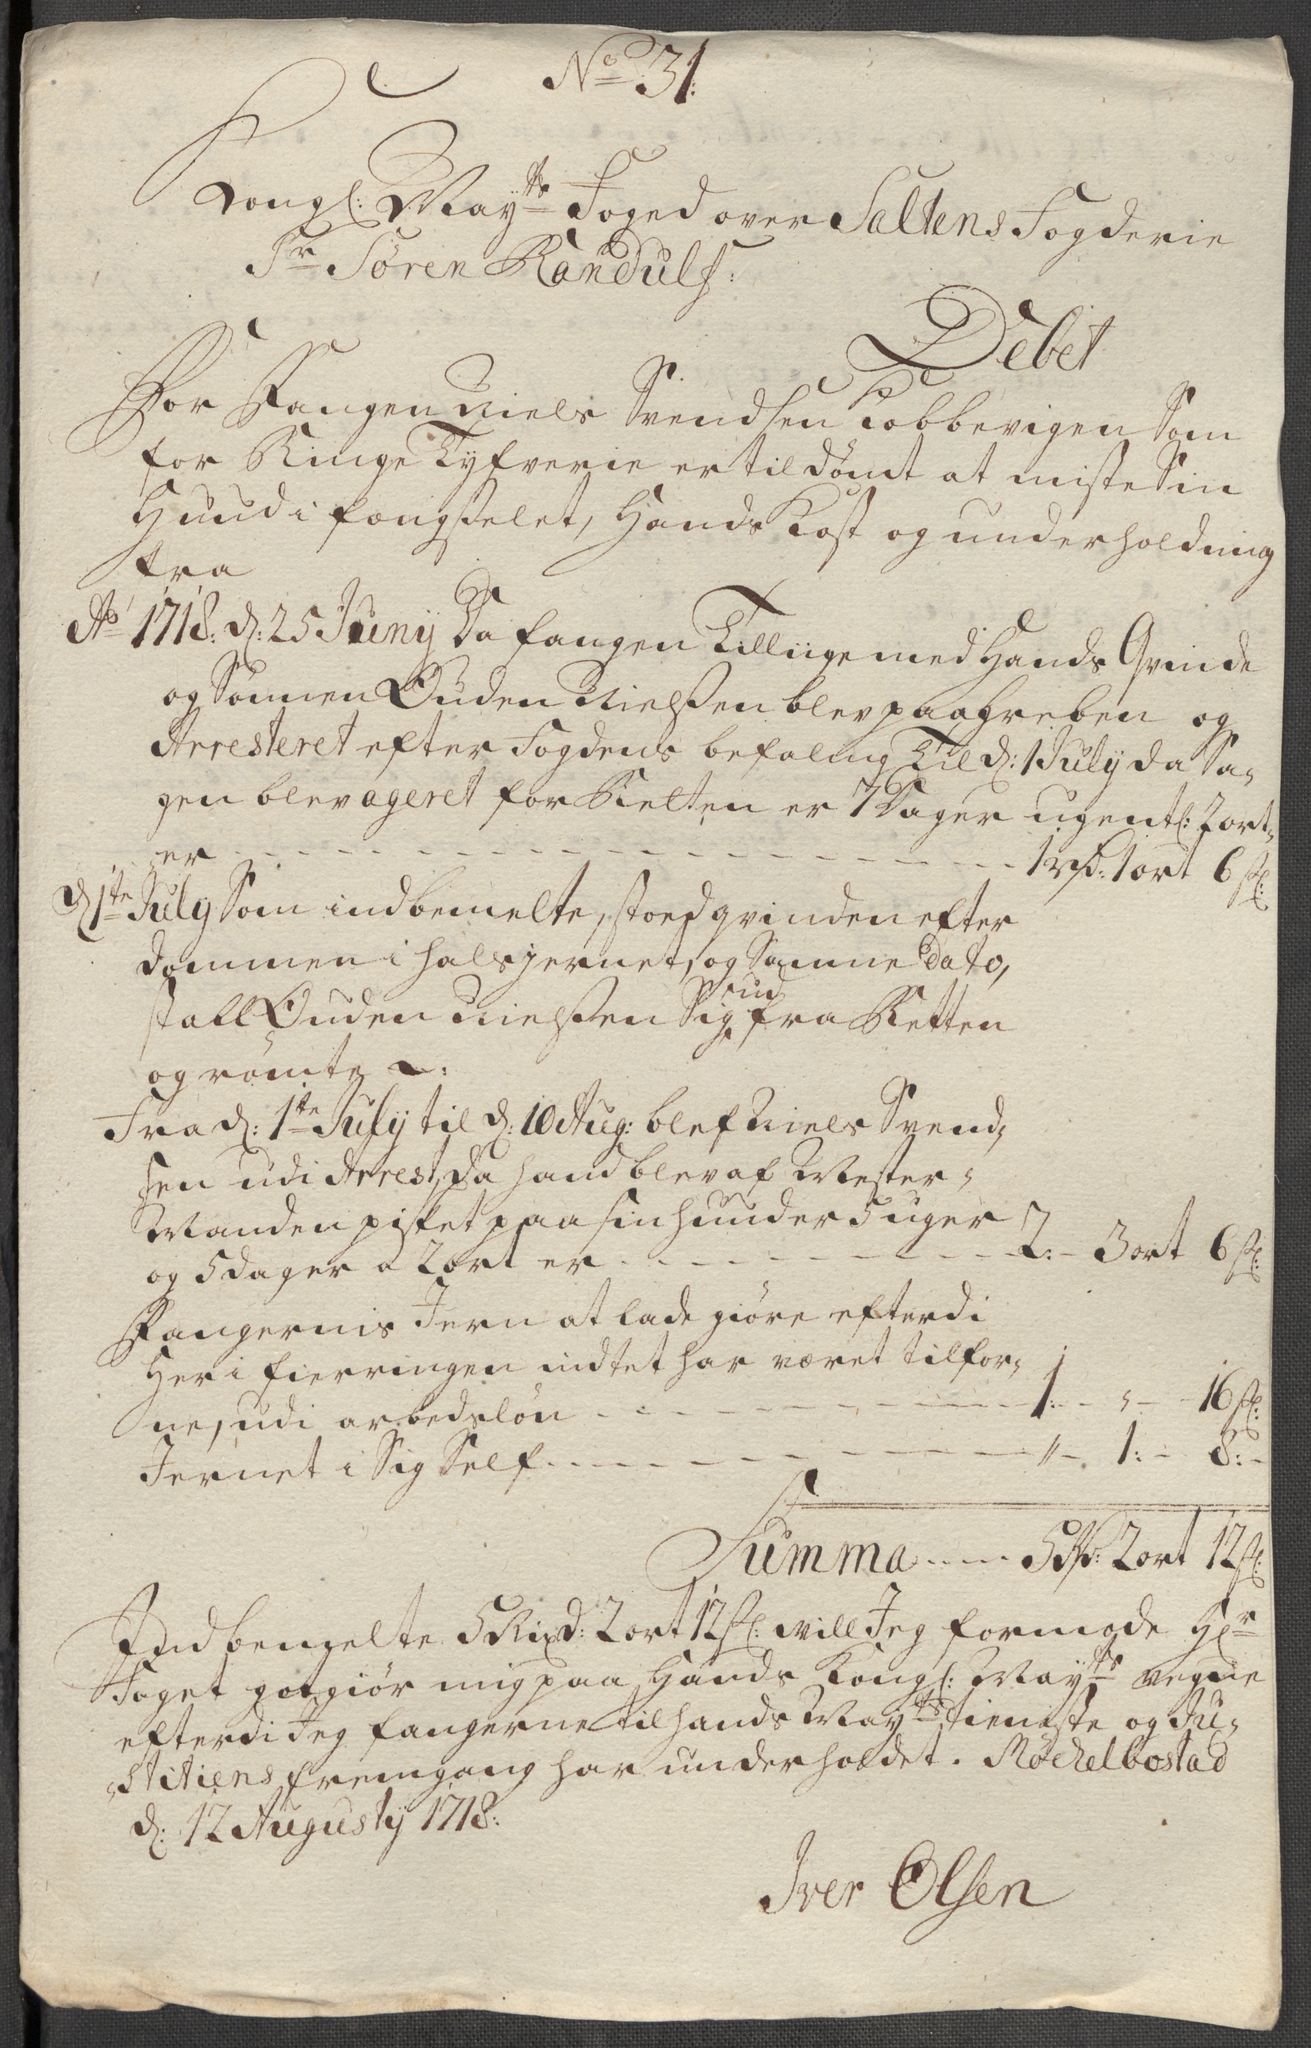 No 31:
Kongl: Mayts Foged over Saltens Fogderie
Sr Søren Randulf:
Debet
For Fangen Niels Svendsen Kobbevigen Som
for Ringe Tyfverie er til dømt at miste Sin
Huud i fængselet, Hands Kost og underholdning
fra
Ao 1718: d: 25 Junij Da fangen Tilliige med Hands Qvinde
og Sønnen Ouden Nielssen blev paagreben og
Arresteret efter Fogdens befaling Til d: 1 July da Sa-
gen blev ageret for Retten er 7 Dager ugentl: 2 ort,
er 1 rd: 1 ort 6 s:
d 1te July Som indbemelte, stoed qvinden efter
dommen i halsjernet, og Samme Dato,
stall Ouden Nielssen Sig ud fra Retten
og römte :
Fra d: 1te July til d: 10 Aug: blef Niels Svend-
sen udi Arrest, da hand blev af Mester-
Manden pisket paa sin hund er 5 uger
og 5 dager a 2 ort er 2: 3 ort 6 s:
Fangernis Jern at lade giöre efterdi
Her i fierringen indtet har været tilfor-
ne, udi arbedslön 1: " 16 s:
Jernet i Sig Self " 1: 8:
Summa 5 Rd: 2 ort 12 s:
Indbemelte 5 Rixd: 2 ort 12 s: will Jeg formode Hr
Foget godgiör mig paa Hands Kongl: Mayts vegne
efterdi Jeg fangerne til hands Mayts tieniste og Ju-
stitiens fremgang har underholdet. Røchelbostad
d: 12 Augusty 1718:
Iver Olsen